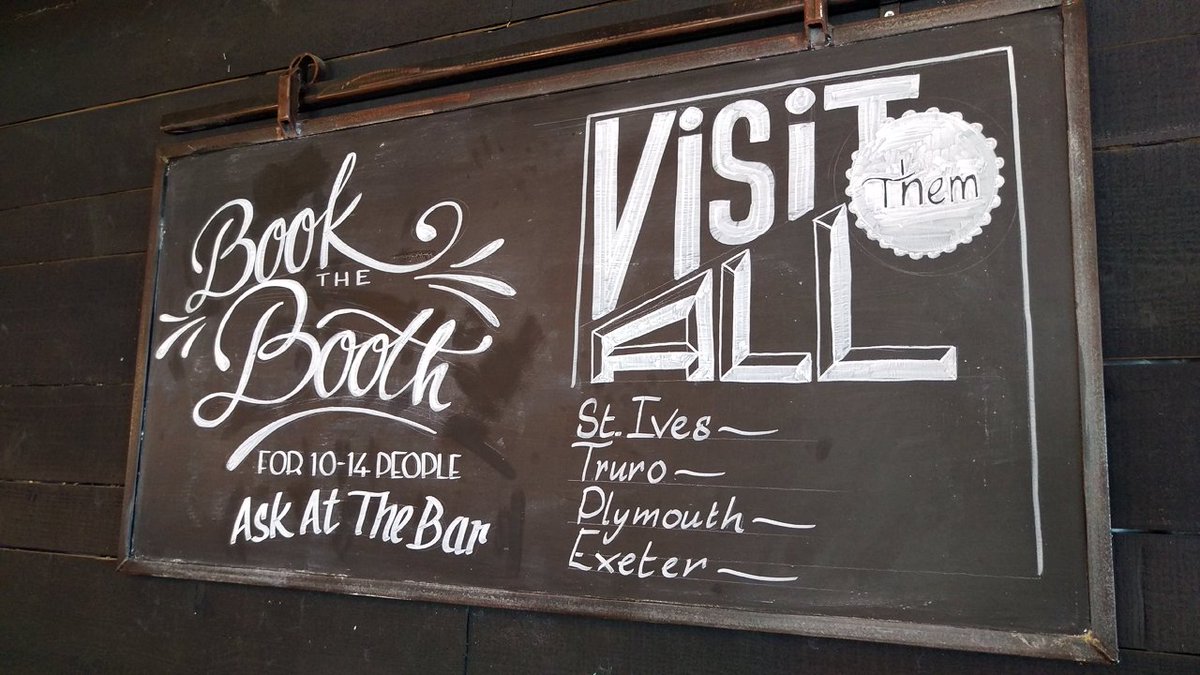 Book
THE
Booth
FOR 10-14 PEOPLE
Ask At The Bar
VISIT
Them
ALL
St. Ives
Truro
Plymouth
Exeter